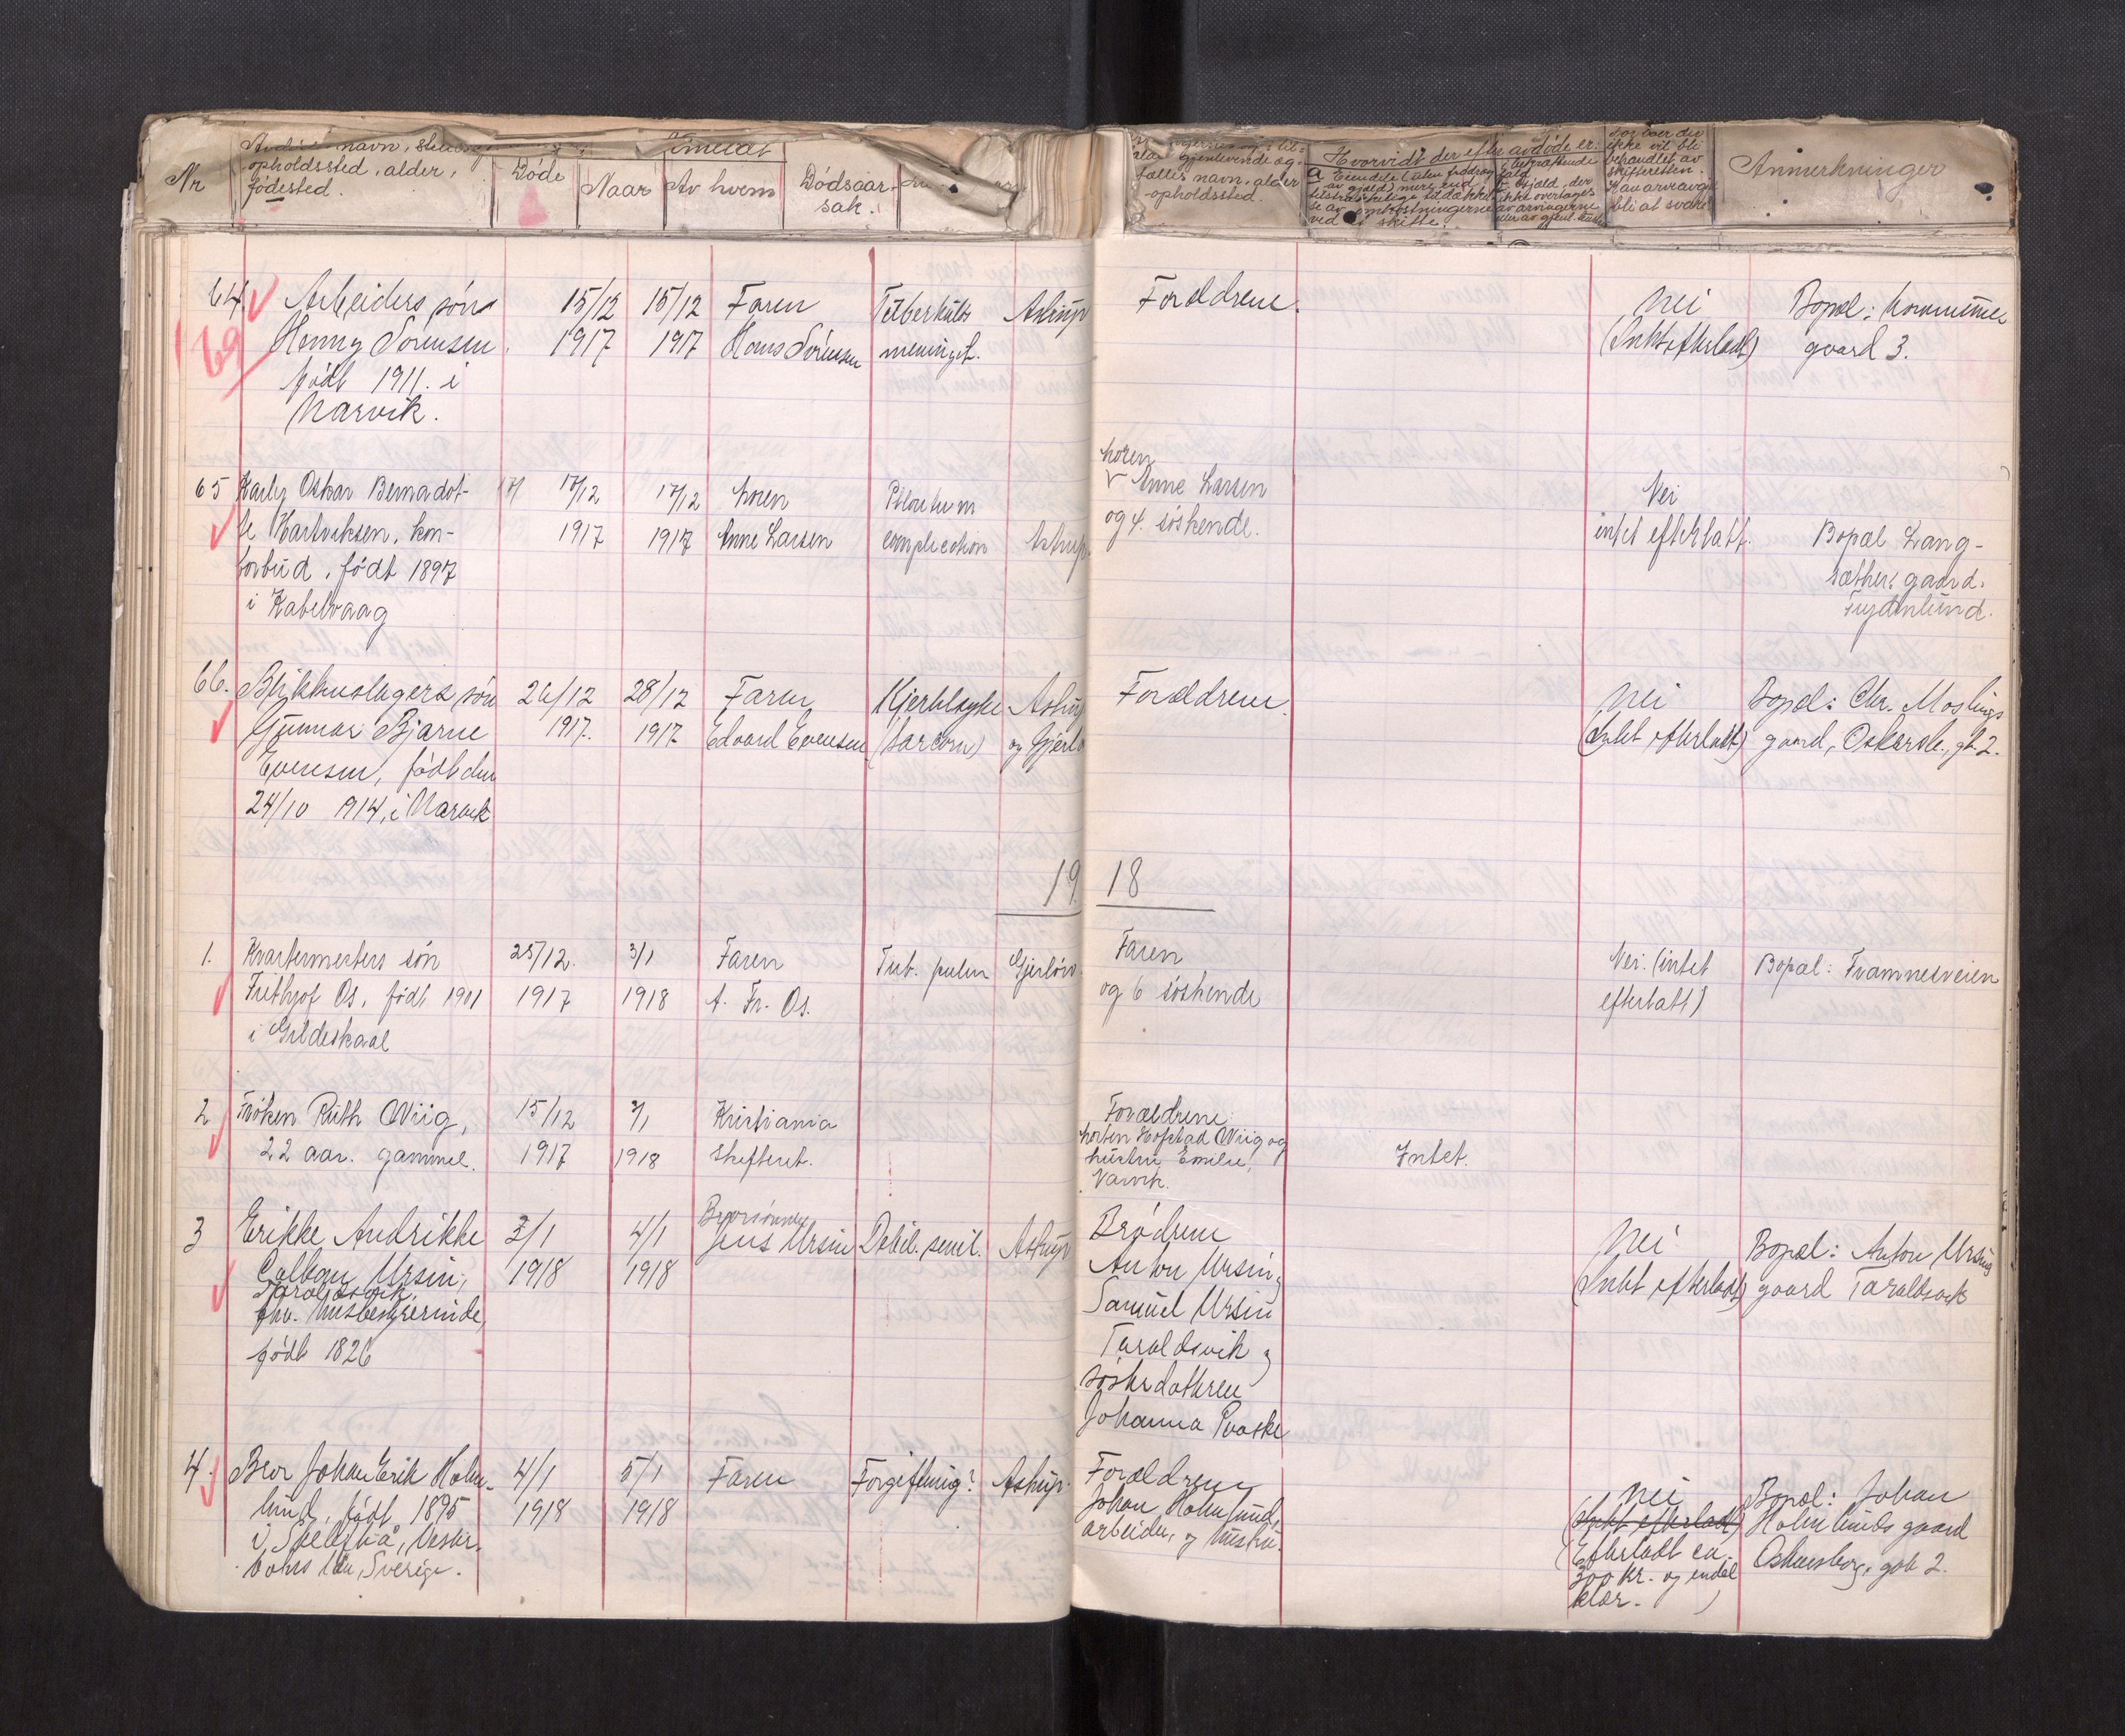 Nr
navn,
opholdssted, alder,
fødested.
Døde
Naar
Av hvem
Dødsaar-
sak.
gjenlevende æg-
fælles navn, alder
opholdssted.
Hvorvidt der efter avdøde er:
a Eiendele (uten fradrag
av gjæld) mere end
ved skifte.
ikke vil bli
behandlet av
skifteretten.
bli at svare
Anmerkninger
64. Arbeiders søn
Henny Sørensen
født 1911. i
Narvik.
69
15/12
1917
15/12
1917
Faren
Hans Sørensen
Tuberkuløs
meningit.
Astrup
Forældrene.
Nei
(Intet efterladt)
Bopæl: Kommunes
gaard 3.
65 Karly Oskar Bernadot-
te Hartviksen, kon-
torbud, født 1897
i Kabelvaag
17/12
1917
17/12
1917
Moren
Anne Larsen
complication
Astrup
Moren
Anne Larsen
og 4. søskende.
Nei
intet efterlatt.
Bopæl Lang-
sæthers gaard.
Frydenlund.
66. Blikkenslagers søn
Gunnar Bjarne
Evensen, født den
24/10 1914, i Narvik
26/12
1917.
28/12
1917
Faren
Edvard Evensen
Kjertelsyke
(sarcom)
Astrup
og Gjerløv
Forældrene.
Nei
(Intet efterladt)
Bopæl: Chr. Moslings
gaard, Oskarsb., gt. 2.
19 18
1. Kvartermesters søn
Frithjof Os, født 1901
i Gildeskaal
25/12.
1917
3/1
1918
Faren
A. Fr. Os.
Tub. pulm
Gjerløw.
Faren
og 6 søskende
Nei. (intet
efterlatt)
Bopæl: Framnesveien
2 Frøken Ruth Wiig,
22 aar. gammel.
15/12
1917
3/1
1918
Kristiania
skifteret.
Forældrene
Morten Hofstad Wiig og
hustru Emilie,
Narvik.
Intet.
3 Erikke Andrikke
Colban Ursin,
Taraldsvik,
fhv. husbestyrerinde,
født 1826
3/1
1918
4/1
1918
Brorsønnen
Jens Ursin
Debil. senil.
Astrup
Brødrene
Anton Ursin,
Samuel Ursin
Taraldsvik og
søsterdatteren
Johanna Kvaske
Nei
(Intet efterladt)
Bopæl: Anton Ursins
gaard Taraldsvik
4. Bror Johan Erik Holm-
lund, født 1895
i Skellefteå, Vester-
bottens län, Sverige.
4/1
1918
5/1
1918
Faren
Forgiftning?
Astrup.
Forældrene
Johan Holmlund,
arbeider, og hustru.
Nei
(Intet efterladt)
(Efterladt ca.
300 kr. og endel
klær.)
Bopæl: Johan
Holmlunds gaard
Oskarsborg, gate 2.